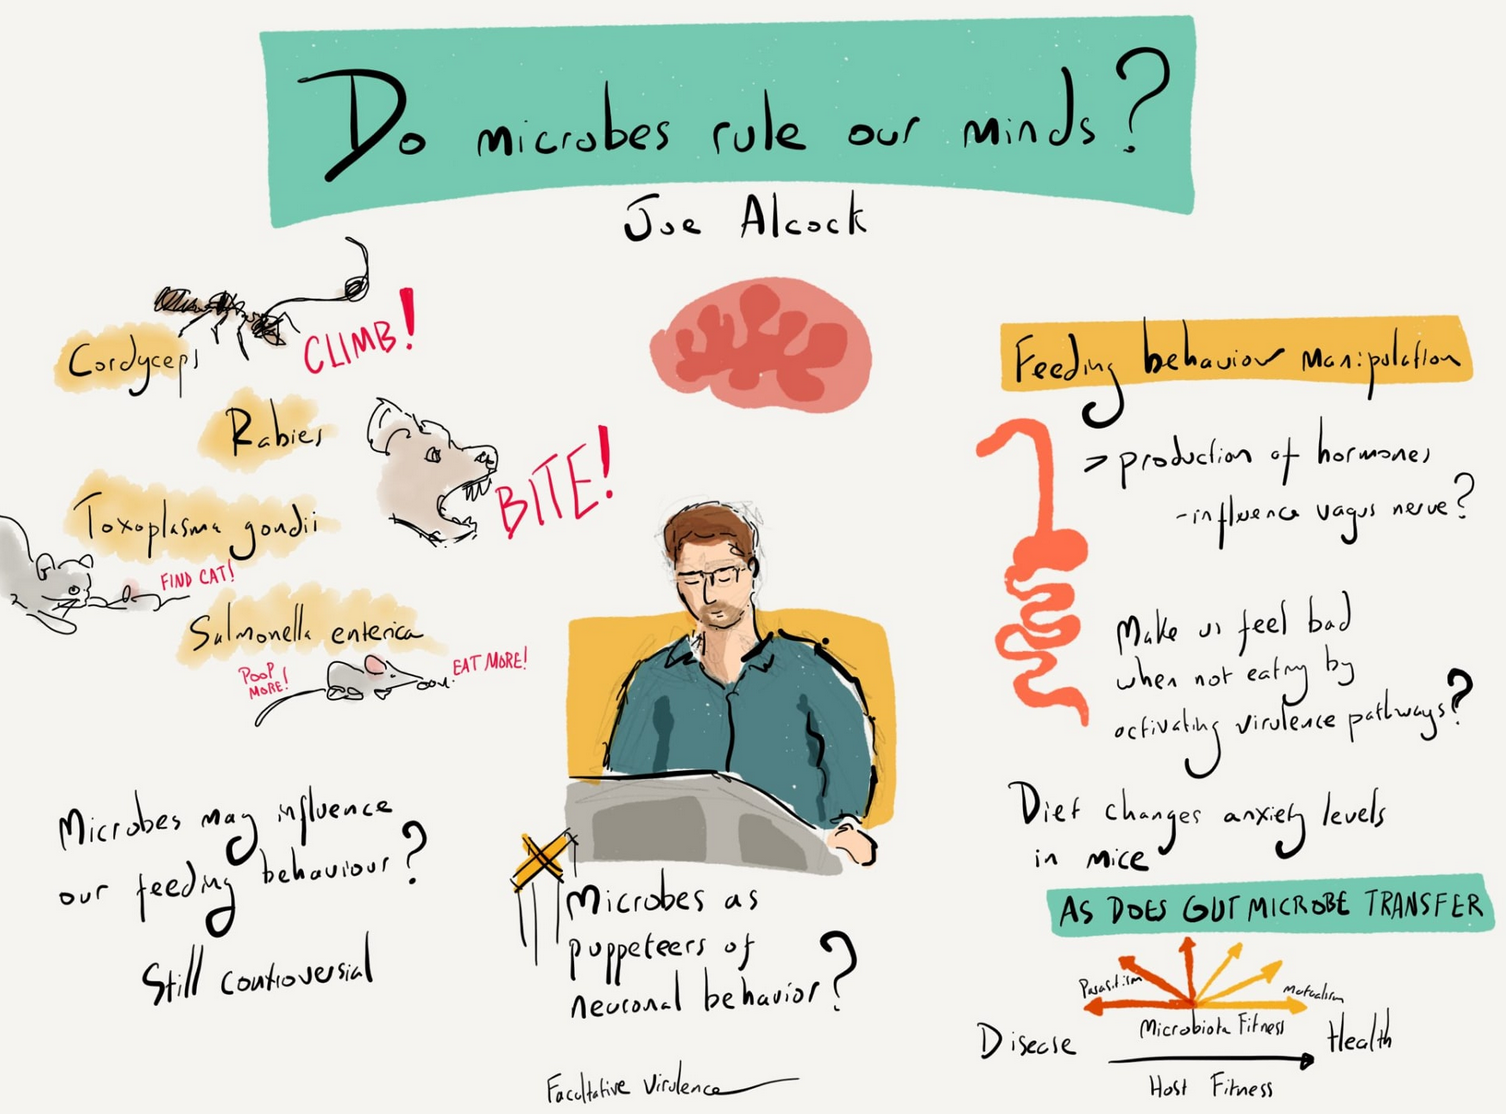 Do microbes rule our minds?
Joe Alcock
CLIMB!
Cordyceps
Rabies
BITE!
Toxoplasma gondii
FIND CAT!
Salmonella enterica
POOP
MORE!
EAT MORE!
Microbes may influence
our feeding behaviour?
Still controversial
Microbes as
puppeteers of
neuronal behavior?
Facultative Virulence
Feeding behavior manipulation
> production of hormones
- influence vagus nerve?
Make us feel bad
when not eating by
activating virulence pathways?
Diet changes anxiety levels
in mice
AS DOES GUT MICROBE TRANSFER
Parasitism
Mutualism
Microbiota Fitness
Disease
Health
Host Fitness